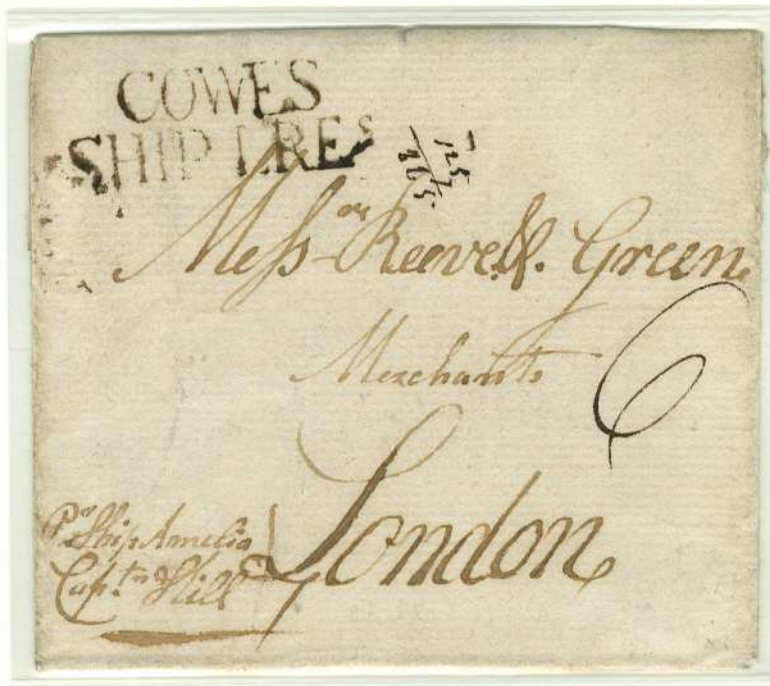 COWES
SHIP LREs
Messrs Reeve & Green
Merchants
6
London
Pr Ship Amelia
Captn Hill